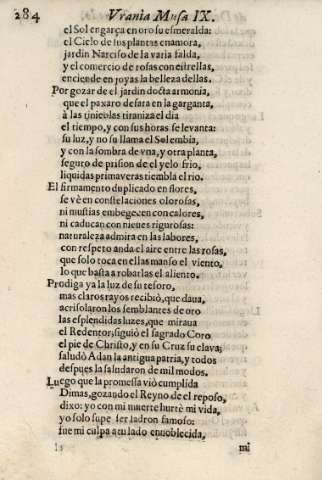 284 Vrania Musa IX.
el Sol engarça en oro su esmeralda:
el Cielo de sus plantas enamora,
jardin Narciso de la varia falda,
y el comercio de rosas con estrellas,
enciende en joyas la belleza dellas.
Por gozar de el jardin docta armonia,
que el paxaro desata en la garganta,
à las tinieblas tiraniza el dia
el tiempo, y con sus horas se levanta:
su luz, y no su llama el Sol embia,
y con la sombra de vna, y otra planta,
seguro de prision de el yelo frio,
liquidas primaveras tiembla el rio.
El firmamento duplicado en flores,
se vè en constelaciones olorosas,
ni mustias embegecen con calores,
ni caducan con nieues rigurosas:
naturaleza admira en las labores,
con respeto anda el aire entre las rosas,
que solo toca en ellas manso el viento,
lo que basta a robarlas el aliento.
Prodiga ya la luz de su tesoro,
mas claros rayos recibiò, que daua,
acrisolaron los semblantes de oro
las esplendidas luzes, que miraua
el Redentor, siguiò el sagrado Coro
el pie de Christo, y en su Cruz su clava;
saludò Adan la antigua patria, y todos
despues la saludaron de mil modos.
Luego que la promessa viò cumplida
Dimas, gozando el Reyno de el reposo,
dixo: yo con mi muerte hurtè mi vida,
yo solo supe ser ladron famoso:
fue mi culpa a tu lado ennoblecida,
mi